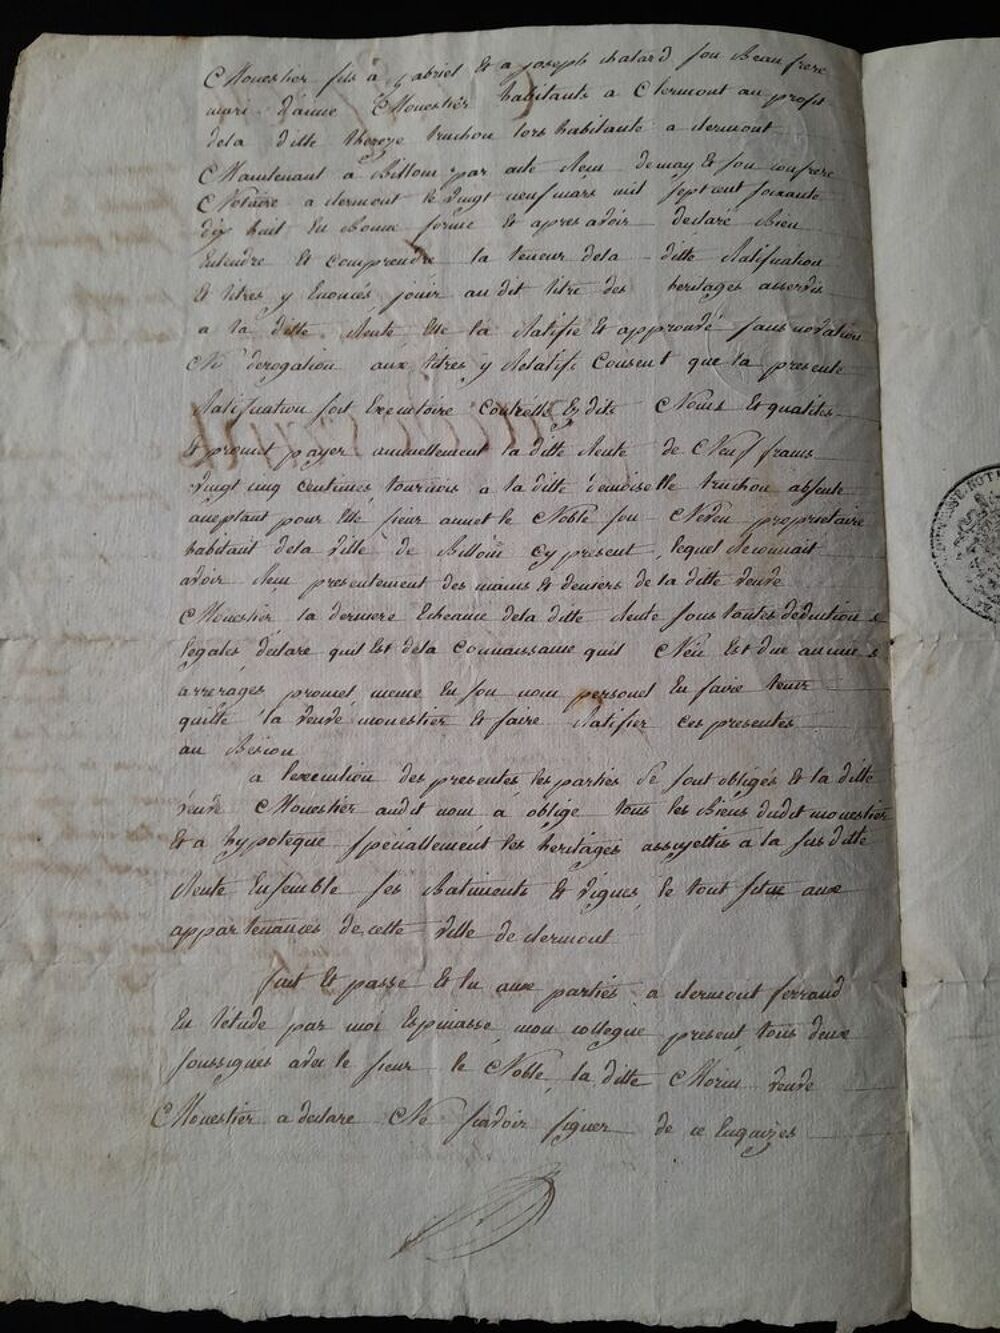 Mouestier fils a gabriel et a joseph chatard son Beau frere
mari d'anne Mouestier habitants a Clermont au profit
dela ditte thereze truchon lors habitante a clermont
Maintenant a Billom par acte Reçu demay et son confrere
Notaire a clermont le vingt neuf mars mil sept cent soixante
dix huit En Bonne forme Et apres avoir declaré Bien
Entendre Et comprendre la teneur dela ditte Ratification
Et titres y Enoncés jouir audit titre des heritages asservis
a la ditte Rente Elle la Ratifié Et approuvé sans novation
Ni derogation aux titres y Relatifs Consent que la presente
Ratification soit Executoire Contrelle Esdits Noms Et qualités
Et promet payer annuellement la ditte Rente de Neuf francs
vingt cinq centimes tournois a la ditte demoiselle truchon absente
aceptant pour Elle sieur annet le Noble son Neveu proprietaire
habitant dela ville de Billom cy present, lequel Reconnait
avoir Reçu presentement des mains Et deniers de la ditte veuve
Mouestier la derniere Echeance dela ditte Rente sous toutes deductions
legales, declare quil Est dela Connaissance quil N'en Est due aucuns
arrerages promet meme En son nom personel En faire tenir
quitte la veuve mouestier Et faire Ratifier ces presentes
au Besoin
a l'execution des presentes les parties se sont obligés Et la ditte
veuve Mouestier audit nom a oblige tous les Biens dudit mouestier
Et a hypoteque spéciallement les heritages assujettis a la susditte
Rente Ensemble ses Batiments Et vignes, le tout situe aux
appartenances de cette ville de clermont
fait Et passe Et lu aux parties a clermont ferrand
En l'étude par moi Espinasse, mon collegue present, tous deux
soussignes avec le sieur le Noble, la ditte Morin veuve
Mouestier a declare Ne savoir signer de ce Enquizes